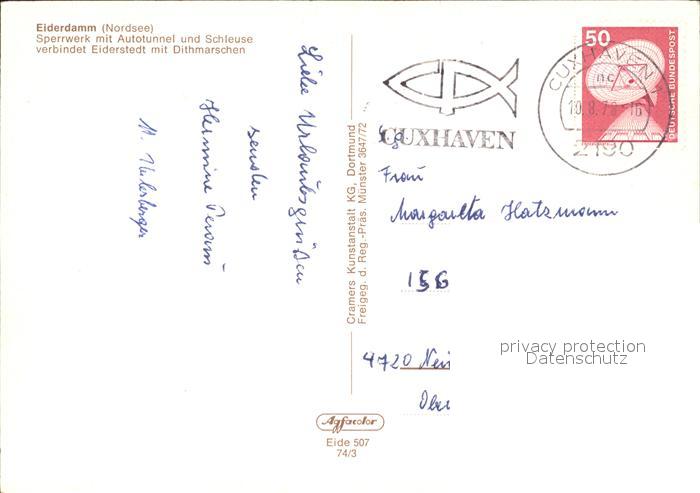 Eiderdamm (Nordsee)
Sperrwerk mit Autotunnel und Schleuse
verbindet Eiderstedt mit Dithmarschen
Liebe Urlaubsgrüße
senden
Hermine
M.
Cramers Kunstanstalt KG, Dortmund
Freigeg. d. Reg.-Präs. Münster 3647/72
CUXHAVEN
CUXHAVEN 1
nc
10.8.78-16
2190
50
DEUTSCHE BUNDESPOST
Frau
Margareta Hatzmann
156
4720
privacy protection
Datenschutz
Agfacolor
Eide 507
74/3